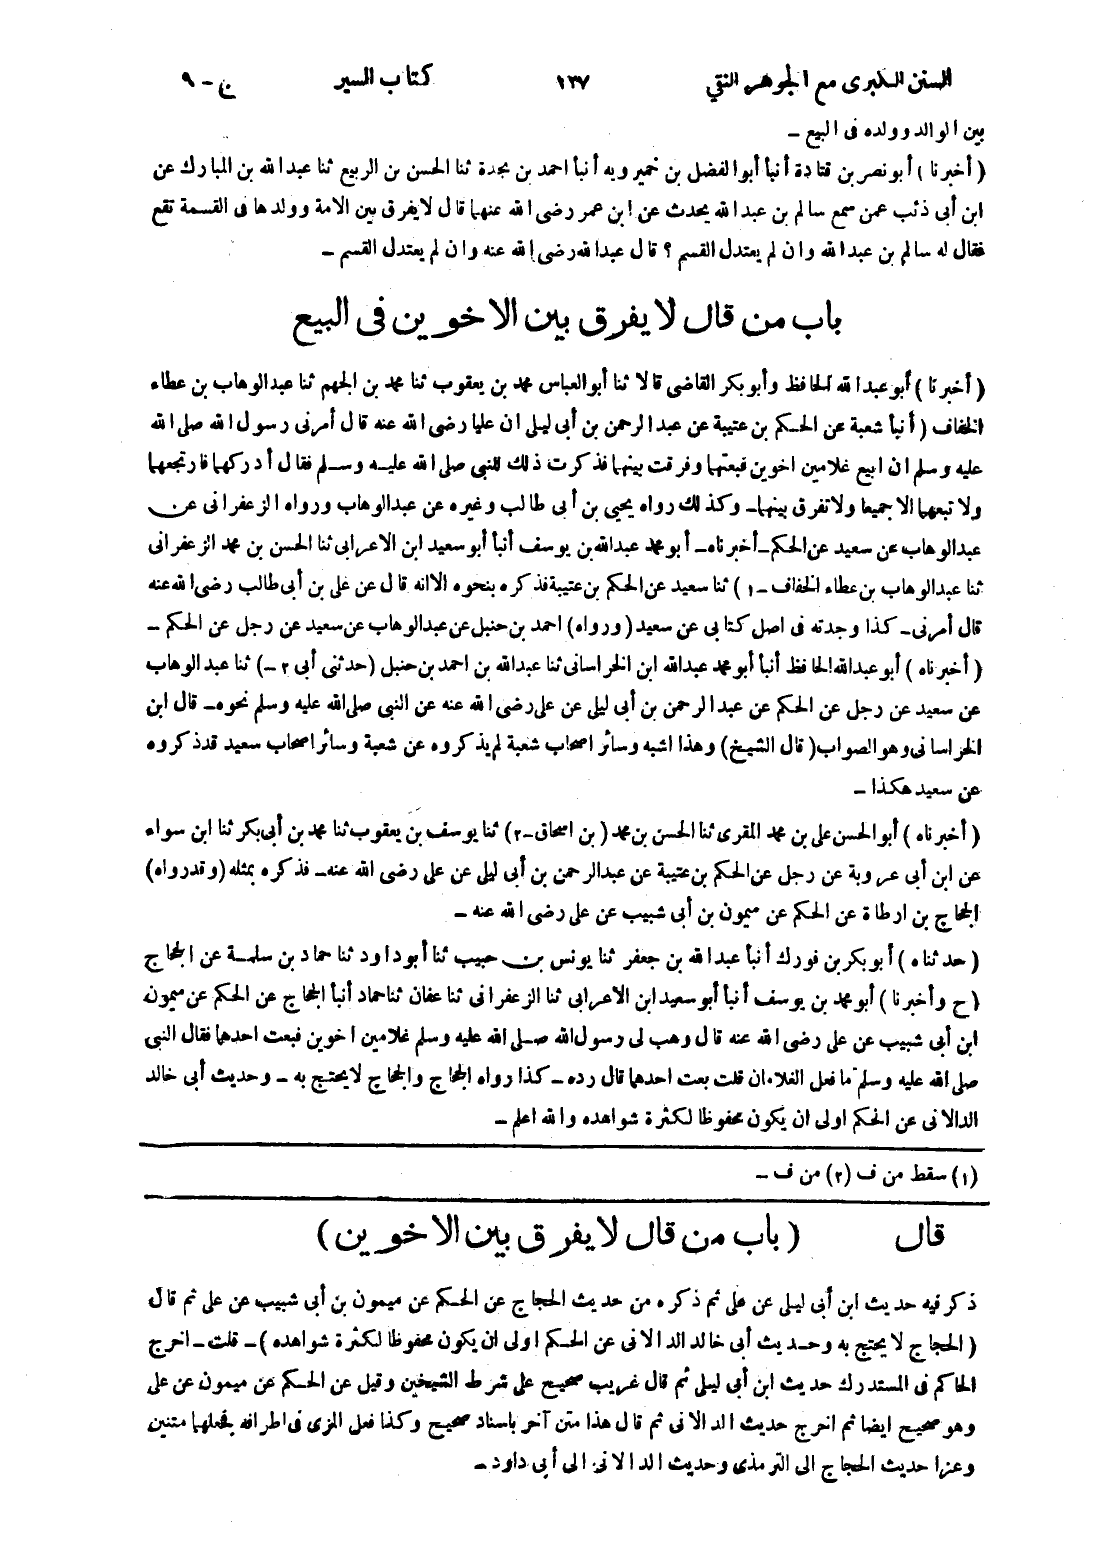 السنن الكبرى مع الجوهر النقي ١٢٧ كتاب السير ج - ٩
بين الوالد وولده فى البيع -
( أخبرنا ) أبو نصر بن قتادة أنبأ أبو الفضل بن خميرويه أنبأ احمد بن نجدة ثنا الحسن بن الربيع ثنا عبد الله بن المبارك عن
ابن أبى ذئب عمن سمع سالم بن عبد الله يحدث عن ابن عمر رضى الله عنهما قال لا يفرق بين الامة وولدها فى القسمة تقع
فقال له سالم بن عبد الله وان لم يعتدل القسم ؟ قال عبد الله رضى الله عنه وان لم يعتدل القسم -
باب من قال لا يفرق بين الاخوين فى البيع
( أخبرنا ) أبو عبد الله الحافظ وأبو بكر القاضى قالا ثنا أبو العباس محمد بن يعقوب ثنا محمد بن الجهم ثنا عبد الوهاب بن عطاء
الخفاف ( أنبأ شعبة عن الحكم بن عتيبة عن عبد الرحمن بن أبى ليلى ان عليا رضى الله عنه قال أمرنى رسول الله صلى الله
عليه وسلم ان ابيع غلامين اخوين فبعتهما وفرقت بينهما فذكرت ذلك للنبى صلى الله عليه وسلم فقال أدركهما فارتجعهما
ولا تبعهما الا جميعا ولا تفرق بينهما - وكذلك رواه يحيى بن أبى طالب وغيره عن عبد الوهاب ورواه الزعفرانى عن
عبد الوهاب عن سعيد عن الحكم - أخبرناه - أبو محمد عبد الله بن يوسف أنبأ أبو سعيد ابن الاعرابى ثنا الحسن بن محمد الزعفرانى
ثنا عبد الوهاب بن عطاء الخفاف - ١ ) ثنا سعيد عن الحكم بن عتيبة فذكره بنحوه الا انه قال عن على بن أبى طالب رضى الله عنه
قال أمرنى - كذا وجدته فى اصل كتابى عن سعيد ( ورواه ) احمد بن حنبل عن عبد الوهاب عن سعيد عن رجل عن الحكم -
( أخبرناه ) أبو عبد الله الحافظ أنبأ أبو محمد عبد الله ابن الخراسانى ثنا عبد الله بن احمد بن حنبل ( حدثنى أبى - ٢ ) ثنا عبد الوهاب
عن سعيد عن رجل عن الحكم عن عبد الرحمن بن أبى ليلى عن على رضى الله عنه عن النبى صلى الله عليه وسلم نحوه - قال ابن
الخراسانى وهو الصواب ( قال الشيخ ) وهذا اشبه وسائر اصحاب شعبة لم يذكروه عن شعبة وسائر اصحاب سعيد قد ذكروه
عن سعيد هكذا -
( أخبرناه ) أبو الحسن على بن محمد المقرى ثنا الحسن بن محمد ( بن اسحاق - ٢ ) ثنا يوسف بن يعقوب ثنا محمد بن أبى بكر ثنا ابن سواء
عن ابن أبى عروبة عن رجل عن الحكم بن عتيبة عن عبد الرحمن بن أبى ليلى عن على رضى الله عنه - فذكره بمثله ( وقد رواه )
الحجاج بن ارطاة عن الحكم عن ميمون بن أبى شبيب عن على رضى الله عنه -
( حدثناه ) أبو بكر بن فورك أنبأ عبد الله بن جعفر ثنا يونس بن حبيب ثنا أبو داود ثنا حماد بن سلمة عن الحجاج
( ح وأخبرنا ) أبو محمد بن يوسف أنبأ أبو سعيد ابن الاعرابى ثنا الزعفرانى ثنا عفان ثنا حماد أنبأ الحجاج عن الحكم عن ميمون
ابن أبى شبيب عن على رضى الله عنه قال وهب لى رسول الله صلى الله عليه وسلم غلامين اخوين فبعت احدهما فقال النبى
صلى الله عليه وسلم ما فعل الغلامان قلت بعت احدهما قال رده - كذا رواه الحجاج والحجاج لا يحتج به - وحديث أبى خالد
الدالانى عن الحكم اولى ان يكون محفوظا لكثرة شواهده والله اعلم -
(١) سقط من ف (٢) من ف -
قال ( باب من قال لا يفرق بين الاخوين )
ذكر فيه حديث ابن أبى ليلى عن على ثم ذكره من حديث الحجاج عن الحكم عن ميمون بن أبى شبيب عن على ثم قال
( الحجاج لا يحتج به وحديث أبى خالد الدالانى عن الحكم اولى ان يكون محفوظا لكثرة شواهده ) - قلت - اخرج
الحاكم فى المستدرك حديث ابن أبى ليلى ثم قال غريب صحيح على شرط الشيخين وقيل عن الحكم عن ميمون عن على
وهو صحيح ايضا ثم اخرج حديث الدالانى ثم قال هذا متن آخر باسناد صحيح وكذا فعل المزى فى اطرافه يجعلهما متنين
وعزا حديث الحجاج الى الترمذى وحديث الدالانى الى أبى داود -